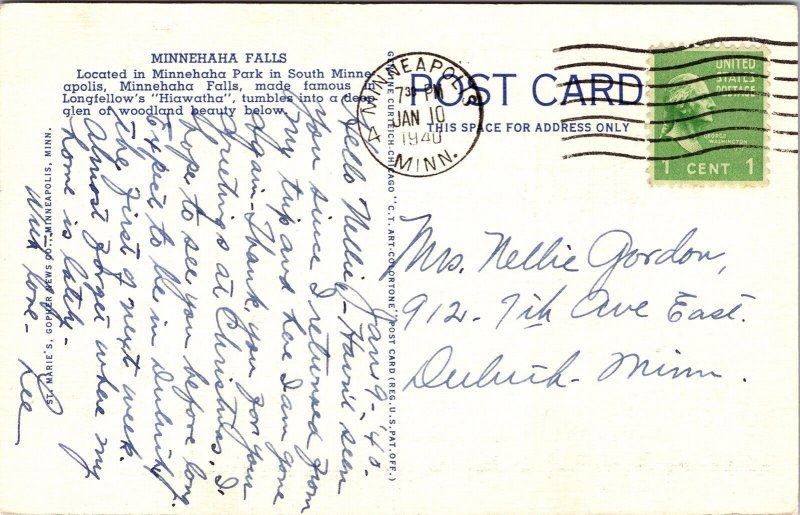 MINNEHAHA FALLS
Located in Minnehaha Park in South Minne-
apolis, Minnehaha Falls, made famous
Longfellow's "Hiawatha", tumbles into a deep
glen of woodland beauty below.
ST. MARIE'S, GOPHER NEWS CO., MINNEAPOLIS, MINN.
GENUINE CURTEICH-CHICAGO "C.T. ART-COLORTONE" POST CARD (REG. U.S. PAT. OFF.)
POST CARD
THIS SPACE FOR ADDRESS ONLY
MINNEAPOLIS
7 30 PM
JAN 10
1940
MINN.
4
UNITED
STATES
POSTAGE
GEORGE
WASHINGTON
1 CENT 1
Jan 9-'40-
Hello Nellie,- Haven't seen
you since I returned from
my trip and here I am gone
again- Thank you for your
Greetings at Christmas. I
hope to see you before long.
Expect to be in Duluth
the first of next week.
Almost forget where my
home is lately-
With love- Lee
Mrs. Nellie Gordon,
912- 7th Ave East.
Duluth- Minn.